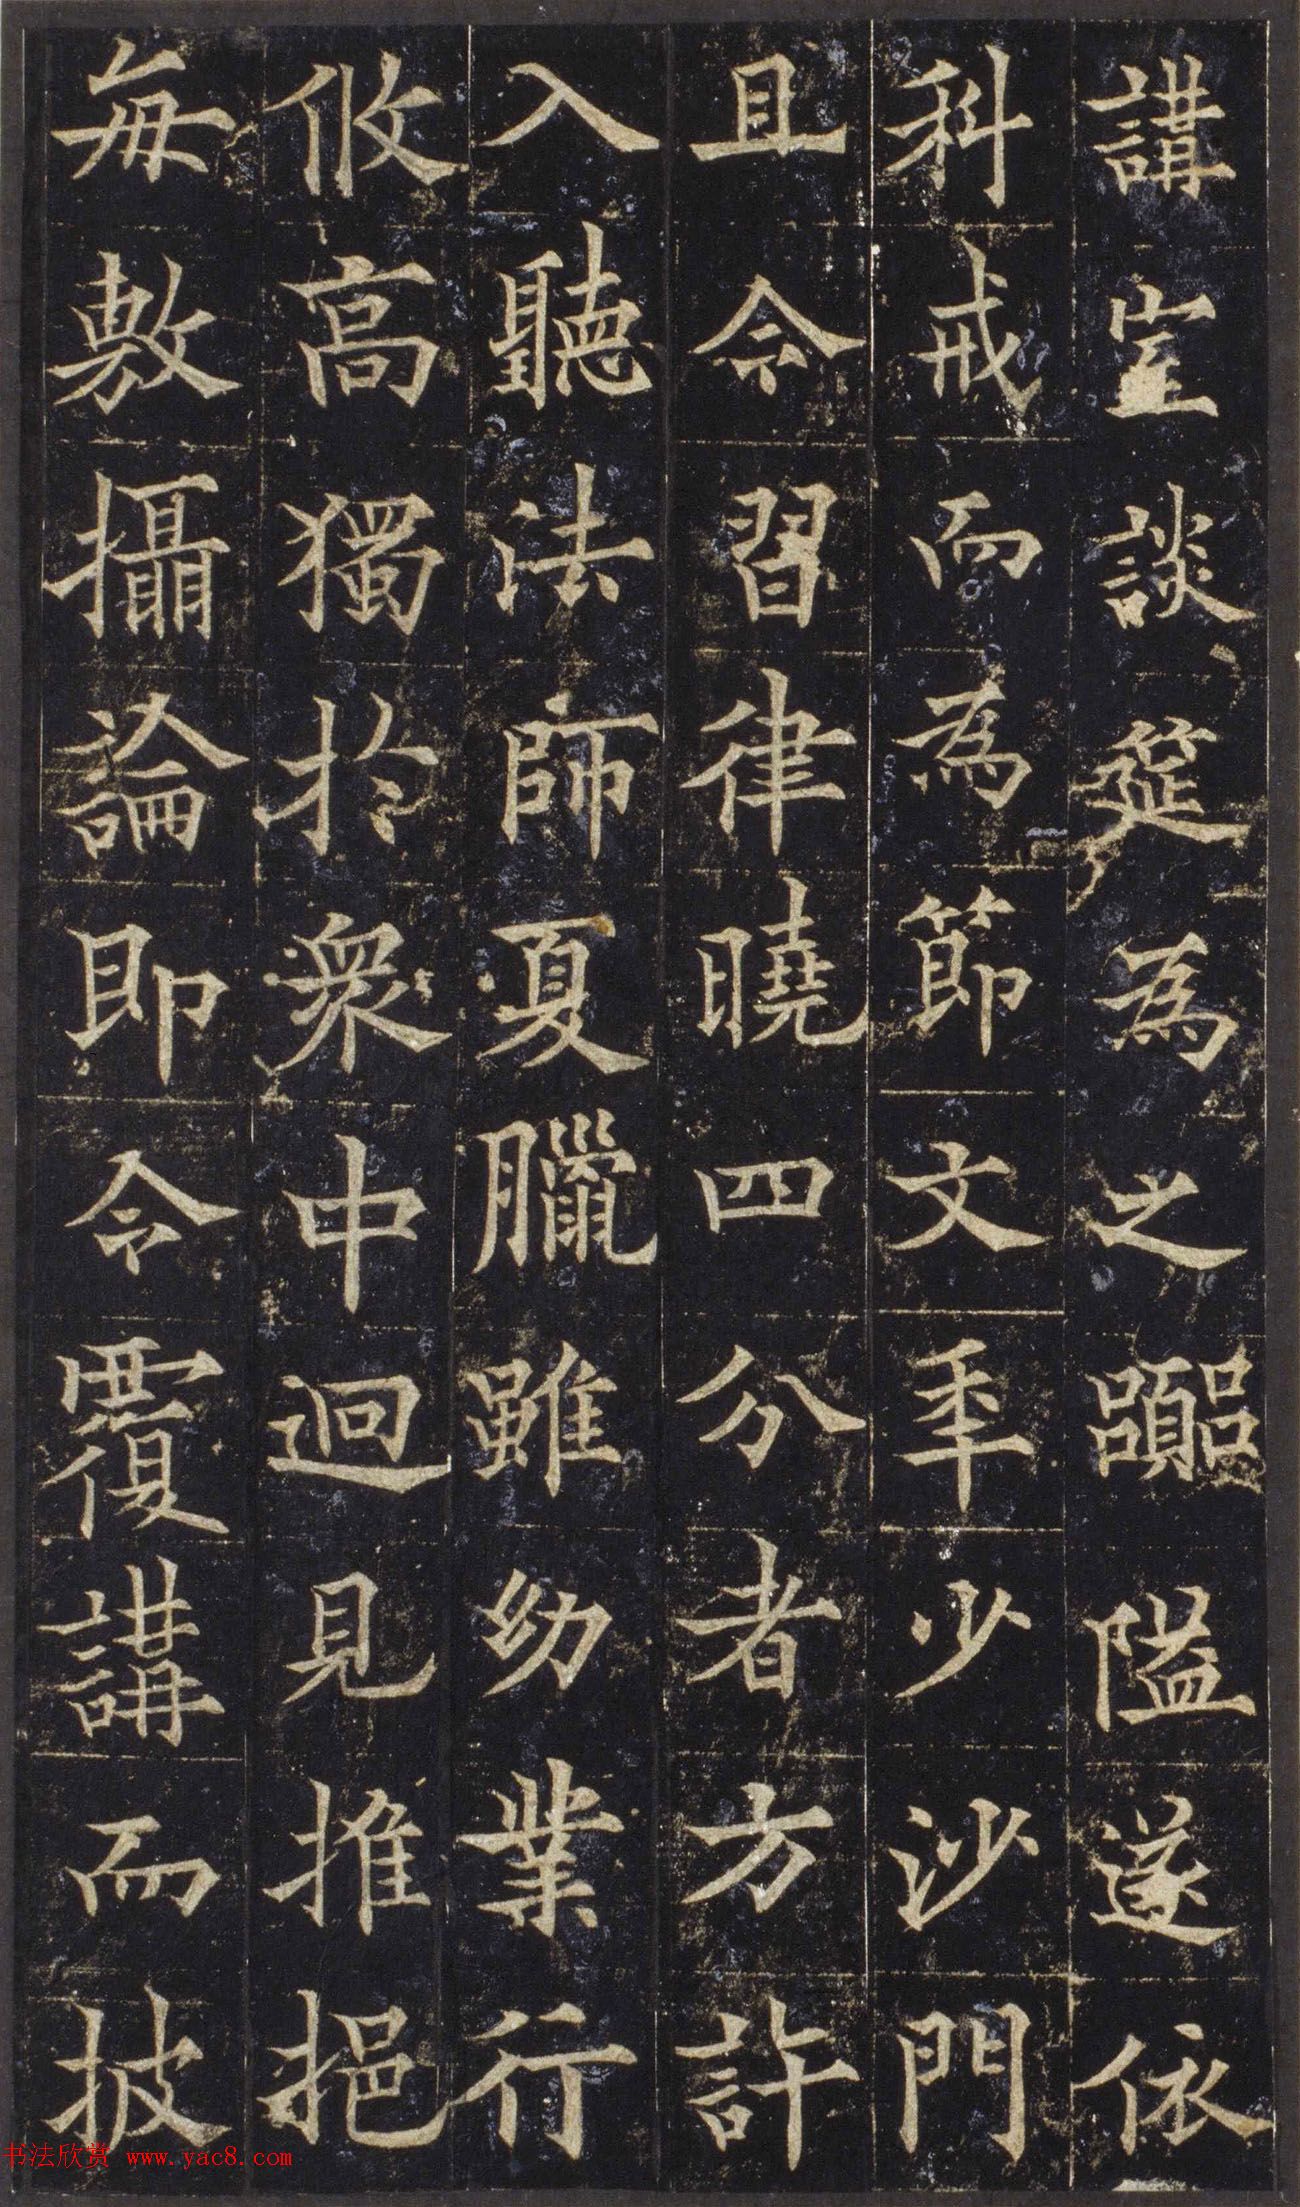 講堂談筵為之囂隘遂依
科戒而為節文年少沙門
且令習律曉四分者方許
入聽法師夏臘雖幼業行
攸高獨於眾中迥見推挹
每敷攝論即令覆講而披
书法欣赏 www.yac8.com